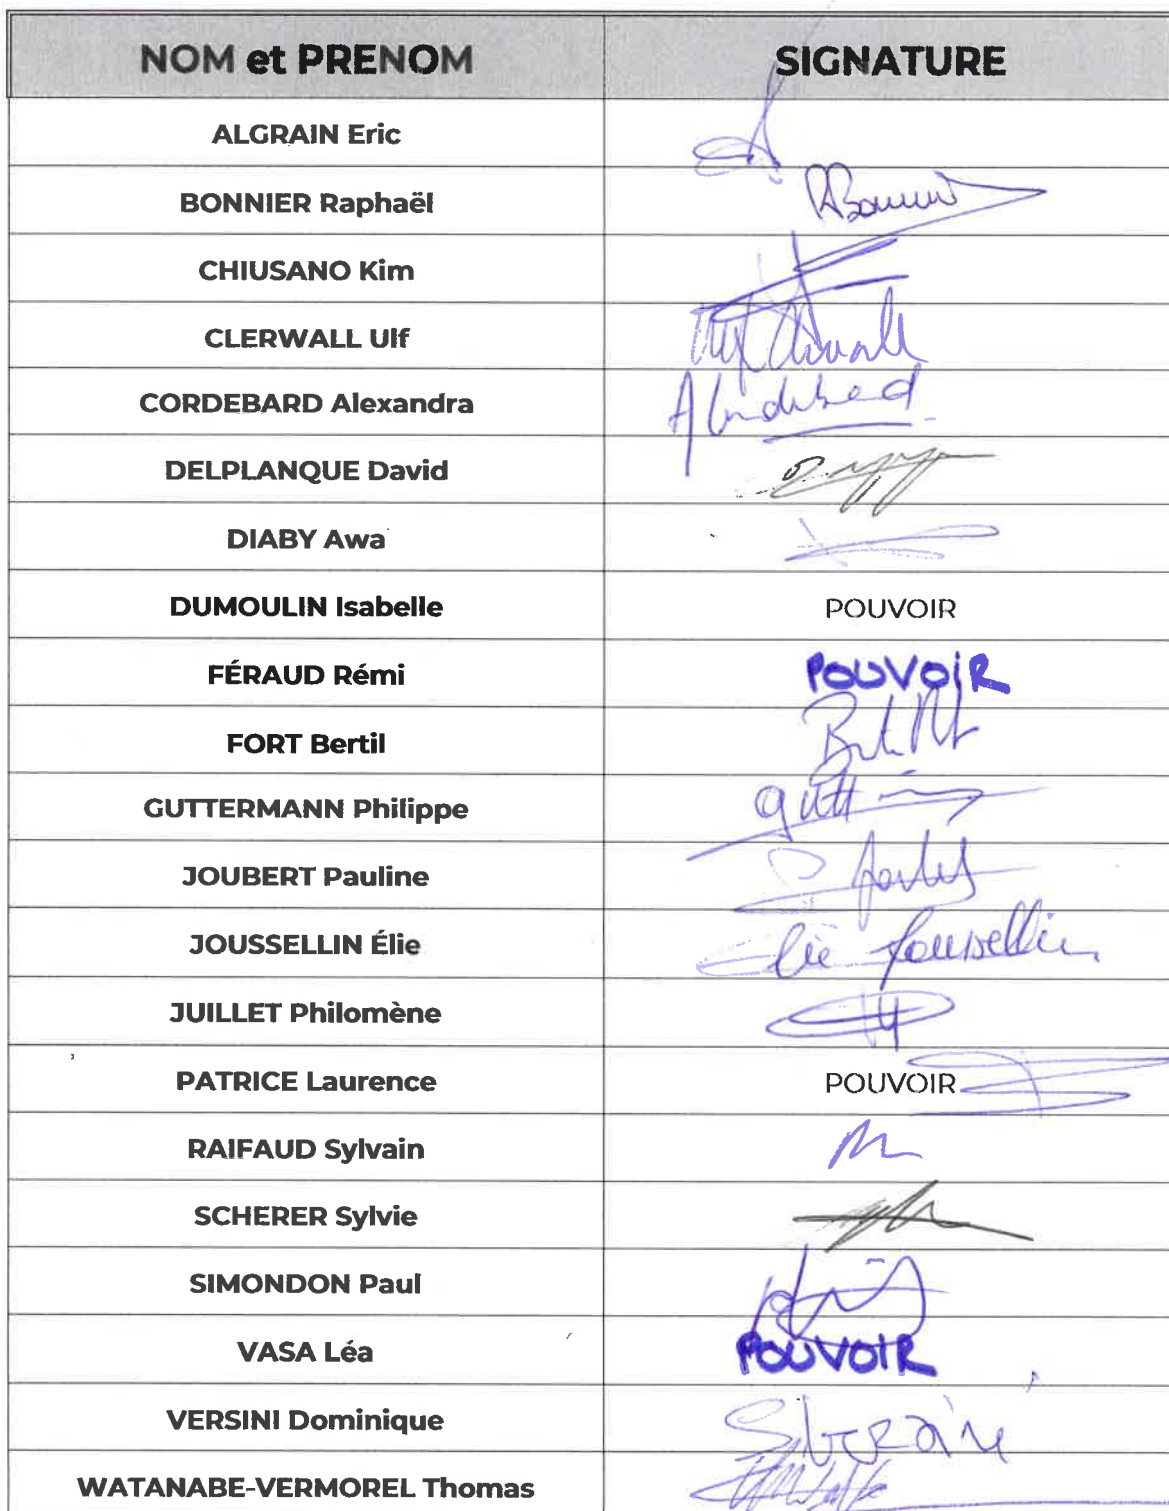 NOM et PRENOM SIGNATURE
ALGRAIN Eric
BONNIER Raphaël RBonnier
CHIUSANO Kim
CLERWALL Ulf
CORDEBARD Alexandra ACordebard
DELPLANQUE David
DIABY Awa
DUMOULIN Isabelle POUVOIR
FÉRAUD Rémi POUVOIR
FORT Bertil
GUTTERMANN Philippe
JOUBERT Pauline
JOUSSELLIN Élie Elie Jousselin
JUILLET Philomène
PATRICE Laurence POUVOIR
RAIFAUD Sylvain
SCHERER Sylvie
SIMONDON Paul
VASA Léa POUVOIR
VERSINI Dominique
WATANABE-VERMOREL Thomas